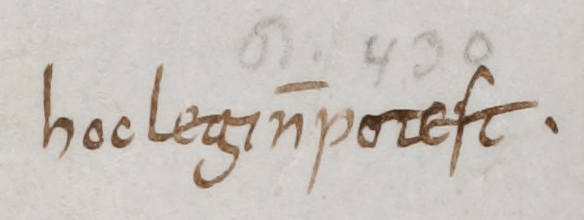 n. 430
hoc legi n̄ potest .